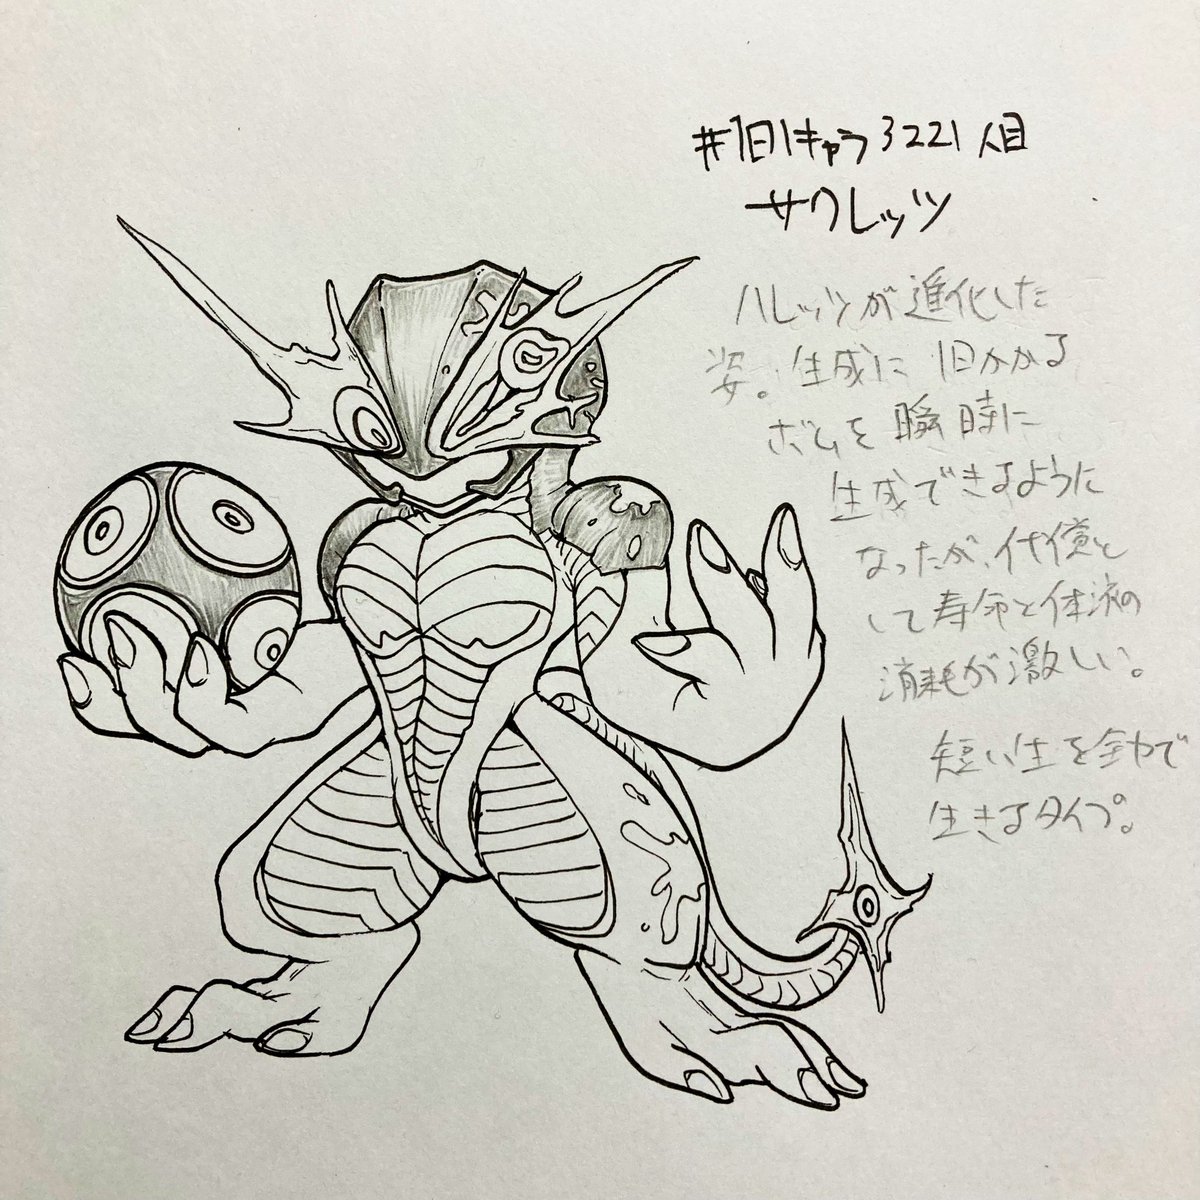 #1日1キャラ3221人目
サクレッツ
ハレッツが進化した
姿。生成に1日かかる
ボムを瞬時に
生成できるように
なったが、代償と
して寿命と体液の
消耗が激しい。
短い生を全力で
生きるタイプ。